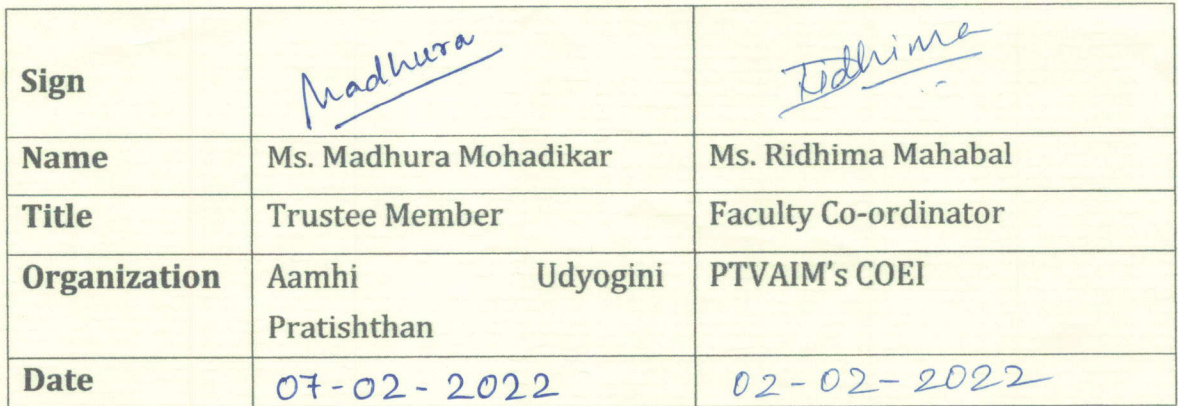 Sign Madhura Ridhima
Name Ms. Madhura Mohadikar Ms. Ridhima Mahabal
Title Trustee Member Faculty Co-ordinator
Organization Aamhi Udyogini PTVAIM's COEI
Pratishthan
Date 07-02-2022 02-02-2022